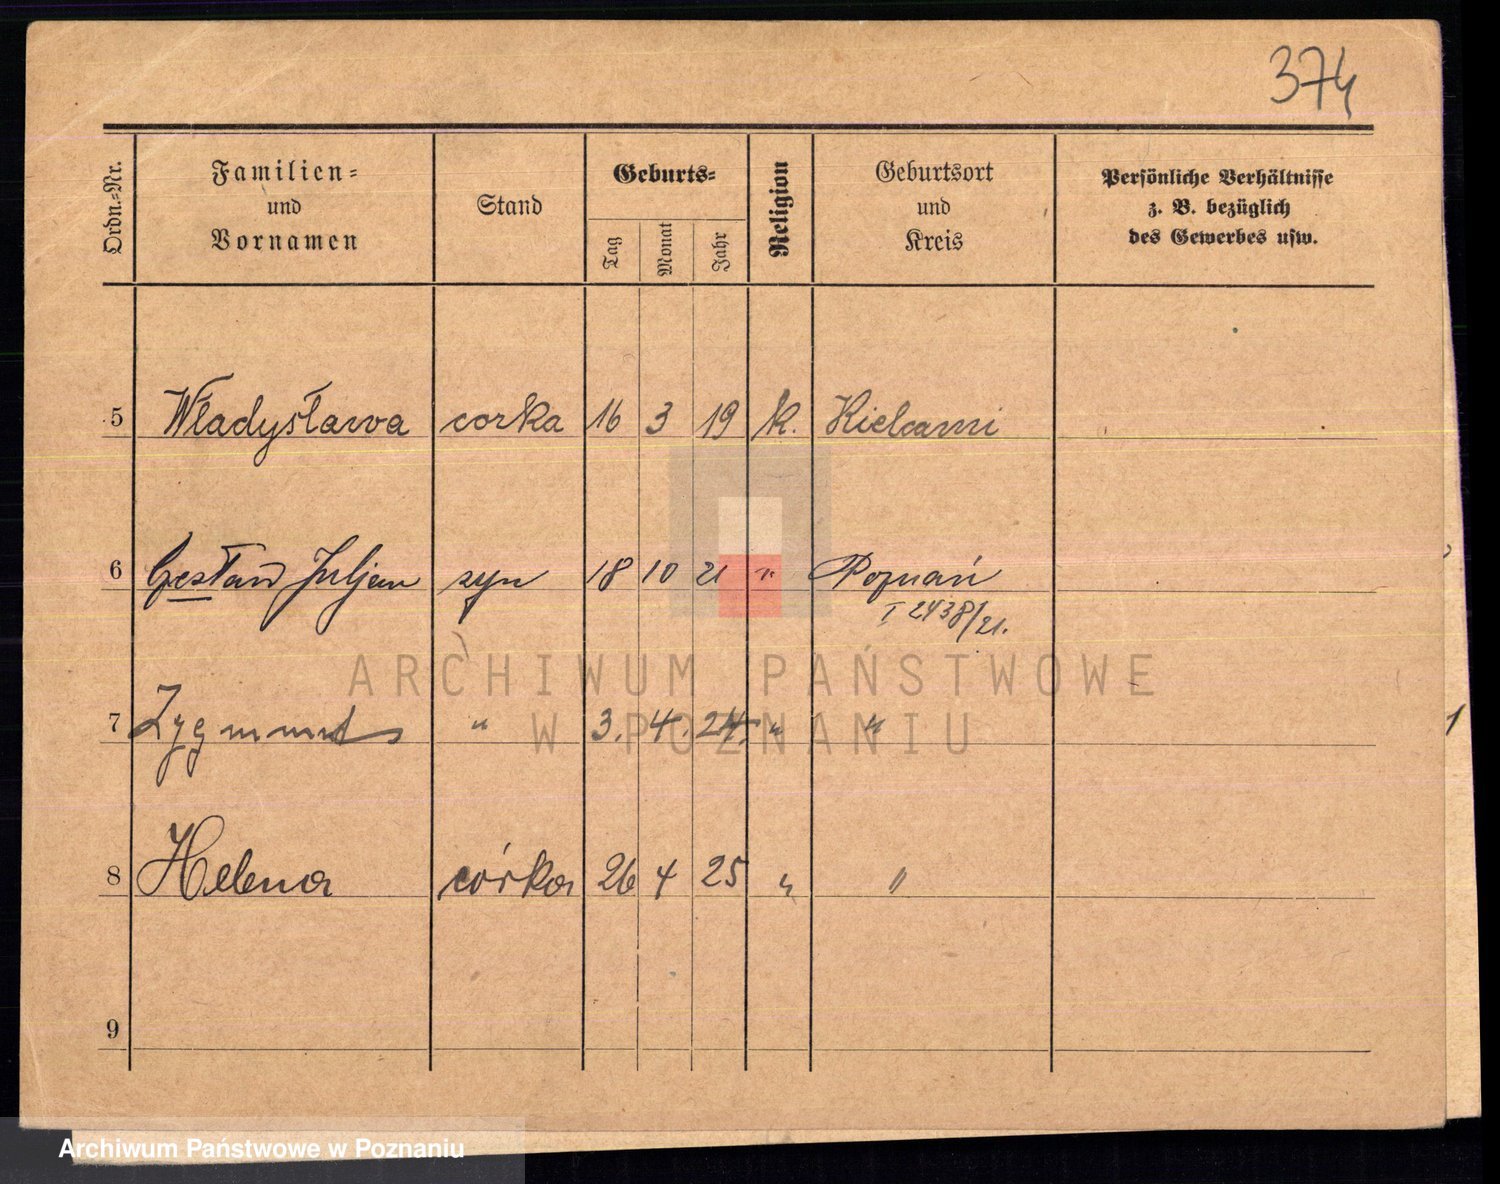 374
Ordn.-Nr.
Familien-
und
Vornamen
Stand
Geburts-
Tag
Monat
Jahr
Religion
Geburtsort
und
Kreis
Persönliche Verhältnisse
z. B. bezüglich
des Gewerbes usw.
5 Władysława corka 16 3 19 k.
6 Juljan syn 18 10 21 " Poznań
I 2438/21.
ARCHIWUM PAŃSTWOWE
W POZNANIU
7 Zygmunt " 3. 4. 24. " "
8 Helena córka 26 4 25 " "
9
Archiwum Państwowe w Poznaniu